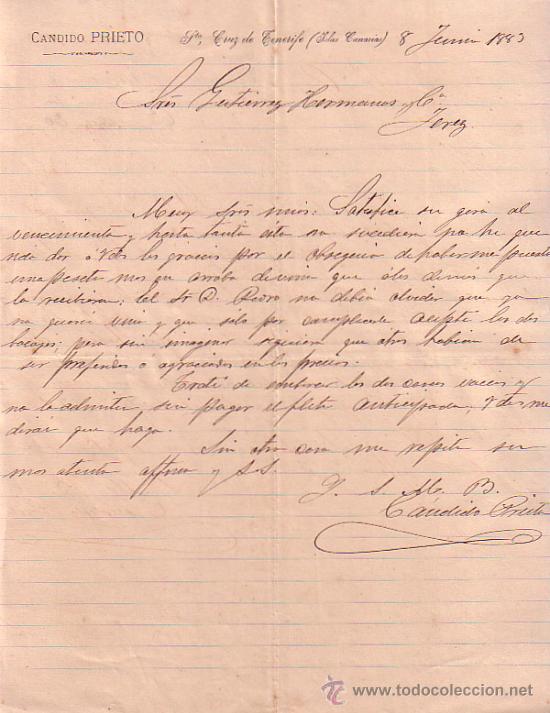 CANDIDO PRIETO
Sta. Cruz de Tenerife (Islas Canarias) 8 Junio 1883
Sres Gutierrez Hermanos y Ca
Jerez
Muy Sres mios: Satisfice su giro al
vencimiento y hasta tanto esto no sucediera no he que
rido dar á Vds las gracias por el obsequio de haberme puesto
una peseta mas que arroba de vino que á los demas que
la recibieron; el Sr D. Pedro no debia olvidar que yo
no queria vino y que solo por complacerle acepté los dos
bocoyes; pero sin imaginar siquiera que otros habian de
ser preferidos o agraciados en los precios.
Traté de embarcar los dos cascos vacios y
no lo admiten, sin pagar el flete anticipado, Vdes me
diran que hago.
Sin otra cosa me repito su
mas atento affmo y S.S.
Q. S. M. B.
Cándido Prieto
todocoleccion
www.todocoleccion.net